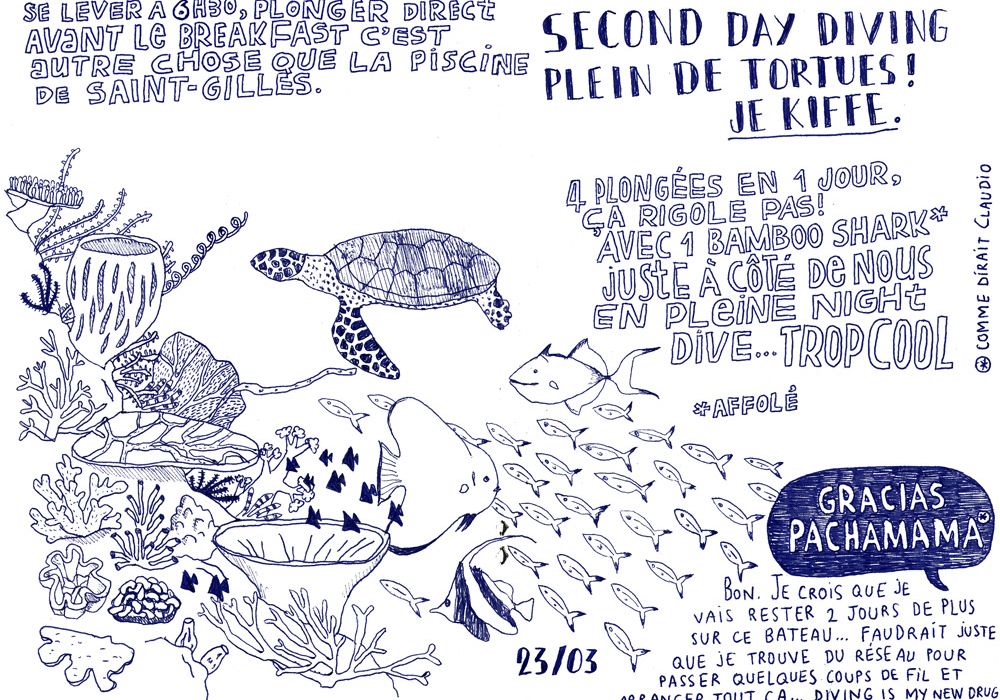 SE LEVER À 6H30, PLONGER DIRECT
AVANT LE BREAKFAST C'EST
AUTRE CHOSE QUE LA PISCINE
DE SAINT-GILLES.
SECOND DAY DIVING
PLEIN DE TORTUES!
JE KIFFE.
4 PLONGÉES EN 1 JOUR,
ÇA RIGOLE PAS!
AVEC 1 BAMBOO SHARK*
JUSTE À CÔTÉ DE NOUS
EN PLEINE NIGHT
DIVE... TROP COOL
*AFFOLÉ
* COMME DIRAIT CLAUDIO
GRACIAS
PACHAMAMA*
BON. JE CROIS QUE JE
VAIS RESTER 2 JOURS DE PLUS
SUR CE BATEAU... FAUDRAIT JUSTE
QUE JE TROUVE DU RÉSEAU POUR
PASSER QUELQUES COUPS DE FIL ET
ARRANGER TOUT ÇA... DIVING IS MY NEW DRUG
23/03